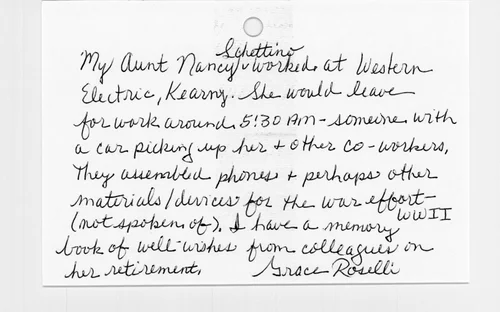 Schettino
My Aunt Nancy worked at Western
Electric, Kearny. She would leave
for work around 5:30 AM - someone with
a car picking up her + other co-workers.
They assembled phones + perhaps other
materials/devices for the war effort-
WWII
(not spoken of). I have a memory
book of well-wishes from colleagues on
her retirement. Grace Roselli